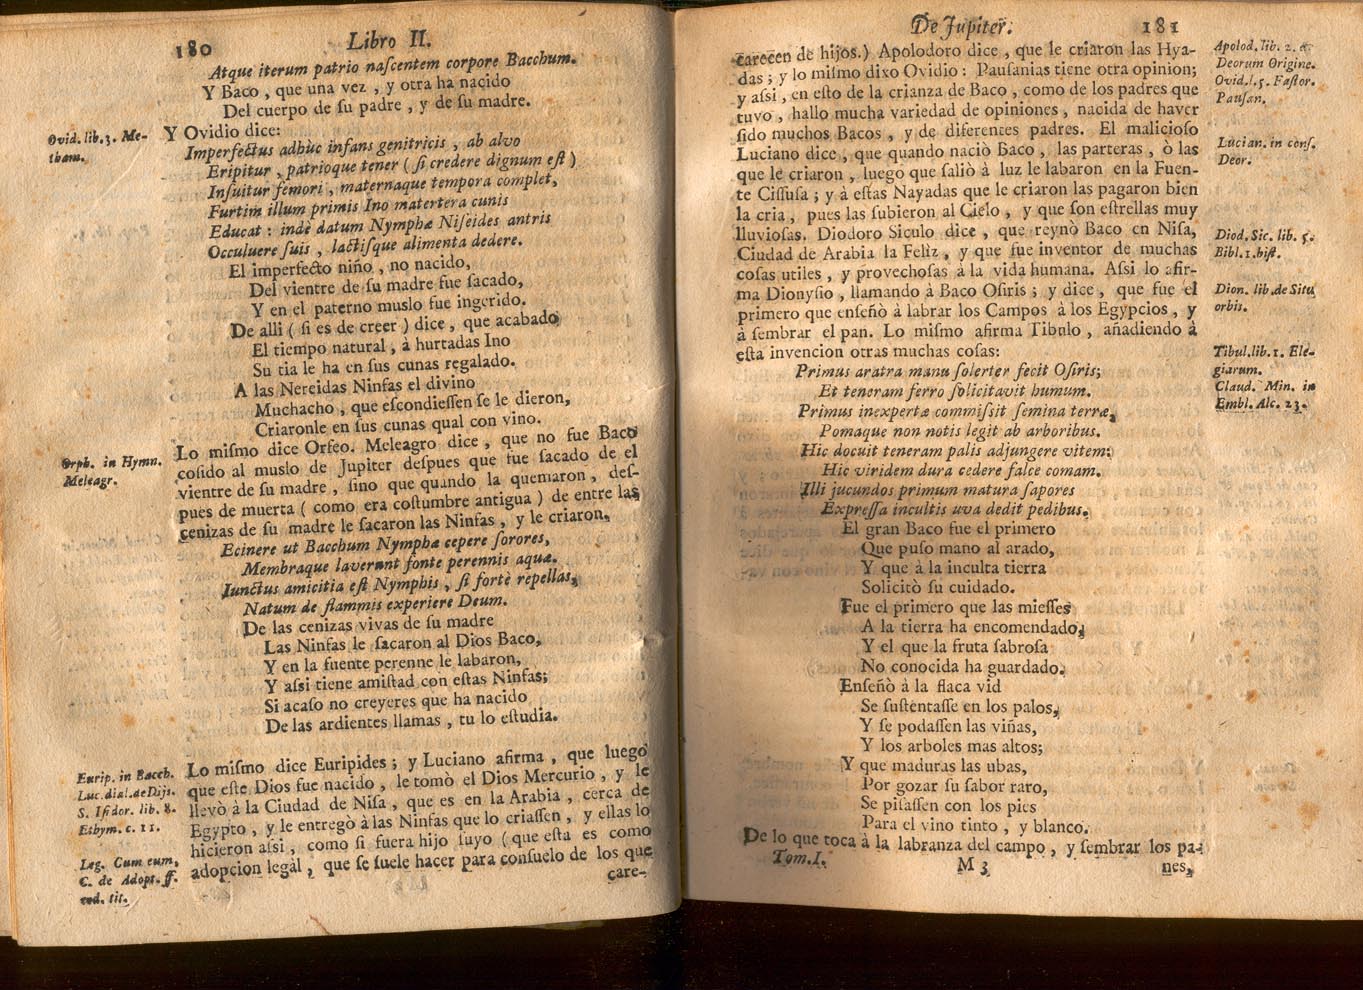 180 Libro II.
Atque iterum patrio naſcentem corpore Bacchum.
Y Baco, que una vez, y otra ha nacido
Del cuerpo de ſu padre, y de ſu madre.
Ovid. lib. 3. Me-
tham.
Y Ovidio dice:
Imperfectus adhùc infans genitricis, ab alvo
Eripitur, patrioque tener (ſi credere dignum eſt)
Inſuitur femori, maternaque tempora complet,
Furtim illum primis Ino matertera cunis
Educat: indè datum Nymphæ Niſeides antris
Occuluere ſuis, lactiſque alimenta dedere.
El imperfecto niño, no nacido,
Del vientre de ſu madre fue ſacado,
Y en el paterno muslo fue ingerido.
De alli (ſi es de creer) dice, que acabado
El tiempo natural, à hurtadas Ino
Su tia le ha en ſus cunas regalado.
A las Nereidas Ninfas el divino
Muchacho, que eſcondieſſen ſe le dieron,
Criaronle en ſus cunas qual con vino.
Orph. in Hymn.
Meleagr.
Lo miſmo dice Orfeo. Meleagro dice, que no fue Baco
coſido al muslo de Jupiter deſpues que fue ſacado de el
vientre de ſu madre, ſino que quando la quemaron, deſ-
pues de muerta (como era coſtumbre antigua) de entre las
cenizas de ſu madre le ſacaron las Ninfas, y le criaron.
Ecinere ut Bacchum Nymphæ cepere ſorores,
Membraque laverunt fonte perennis aquæ.
Iunctus amicitia eſt Nymphis, ſi fortè repellas,
Natum de flammis experiere Deum.
De las cenizas vivas de ſu madre
Las Ninfas le ſacaron al Dios Baco,
Y en la fuente perenne le labaron,
Y aſsi tiene amiſtad con eſtas Ninfas;
Si acaſo no creyeres que ha nacido
De las ardientes llamas, tu lo eſtudia.
Eurip. in Bacch.
Luc. dial. de Dijs.
S. Iſidor. lib. 8.
Ethym. c. 11.
Leg. Cum eum,
C. de Adopt. ff.
eod. tit.
Lo miſmo dice Euripides; y Luciano afirma, que luego
que eſte Dios fue nacido, le tomò el Dios Mercurio, y le
llevò à la Ciudad de Niſa, que es en la Arabia, cerca de
Egypto, y le entregò à las Ninfas que lo criaſſen, y ellas lo
hicieron aſsi, como ſi fuera hijo ſuyo (que eſta es como
adopcion legàl, que ſe ſuele hacer para conſuelo de los que
care-
De Jupiter. 181
carecen de hijos.) Apolodoro dice, que le criaron las Hya-
das; y lo miſmo dixo Ovidio: Pauſanias tiene otra opinion;
y aſsi, en eſto de la crianza de Baco, como de los padres que
tuvo, hallo mucha variedad de opiniones, nacida de haver
ſido muchos Bacos, y de diferentes padres. El malicioſo
Luciano dice, que quando naciò Baco, las parteras, ò las
que le criaron, luego que ſaliò à luz le labaron en la Fuen-
te Ciſſuſa; y à eſtas Nayadas que le criaron las pagaron bien
la cria, pues las ſubieron al Cielo, y que ſon eſtrellas muy
lluvioſas. Diodoro Siculo dice, que reynò Baco en Niſa,
Ciudad de Arabia la Feliz, y que fue inventor de muchas
coſas utiles, y provechoſas à la vida humana. Aſsi lo afir-
ma Dionyſio, llamando à Baco Oſiris; y dice, que fue el
primero que enſeñò à labrar los Campos à los Egypcios, y
à ſembrar el pan. Lo miſmo afirma Tibulo, añadiendo à
eſta invencion otras muchas coſas:
Apolod. lib. 2. &
Deorum Origine.
Ovid. l. 5. Faſtor.
Pauſan.
Lucian. in conſ.
Deor.
Diod. Sic. lib. 5.
Bibl. 1. hiſt.
Dion. lib. de Situ
orbis.
Tibul. lib. 1. Ele-
giarum.
Claud. Min. in
Embl. Alc. 23.
Primus aratra manu ſolerter fecit Oſiris;
Et teneram ferro ſolicitavit humum.
Primus inexpertæ commiſsit ſemina terræ,
Pomaque non notis legit ab arboribus.
Hic docuit teneram palis adjungere vitem:
Hic viridem dura cedere falce comam.
Illi jucundos primum matura ſapores
Expreſſa incultis uva dedit pedibus.
El gran Baco fue el primero
Que puſo mano al arado,
Y que à la inculta tierra
Solicitò ſu cuidado.
Fue el primero que las mieſſes
A la tierra ha encomendado,
Y el que la fruta ſabroſa
No conocida ha guardado.
Enſeñò à la flaca vid
Se ſuſtentaſſe en los palos,
Y ſe podaſſen las viñas,
Y los arboles mas altos;
Y que maduras las ubas,
Por gozar ſu ſabor raro,
Se piſaſſen con los pies
Para el vino tinto, y blanco.
De lo que toca à la labranza del campo, y ſembrar los pa-
Tom. I. M 3 nes,